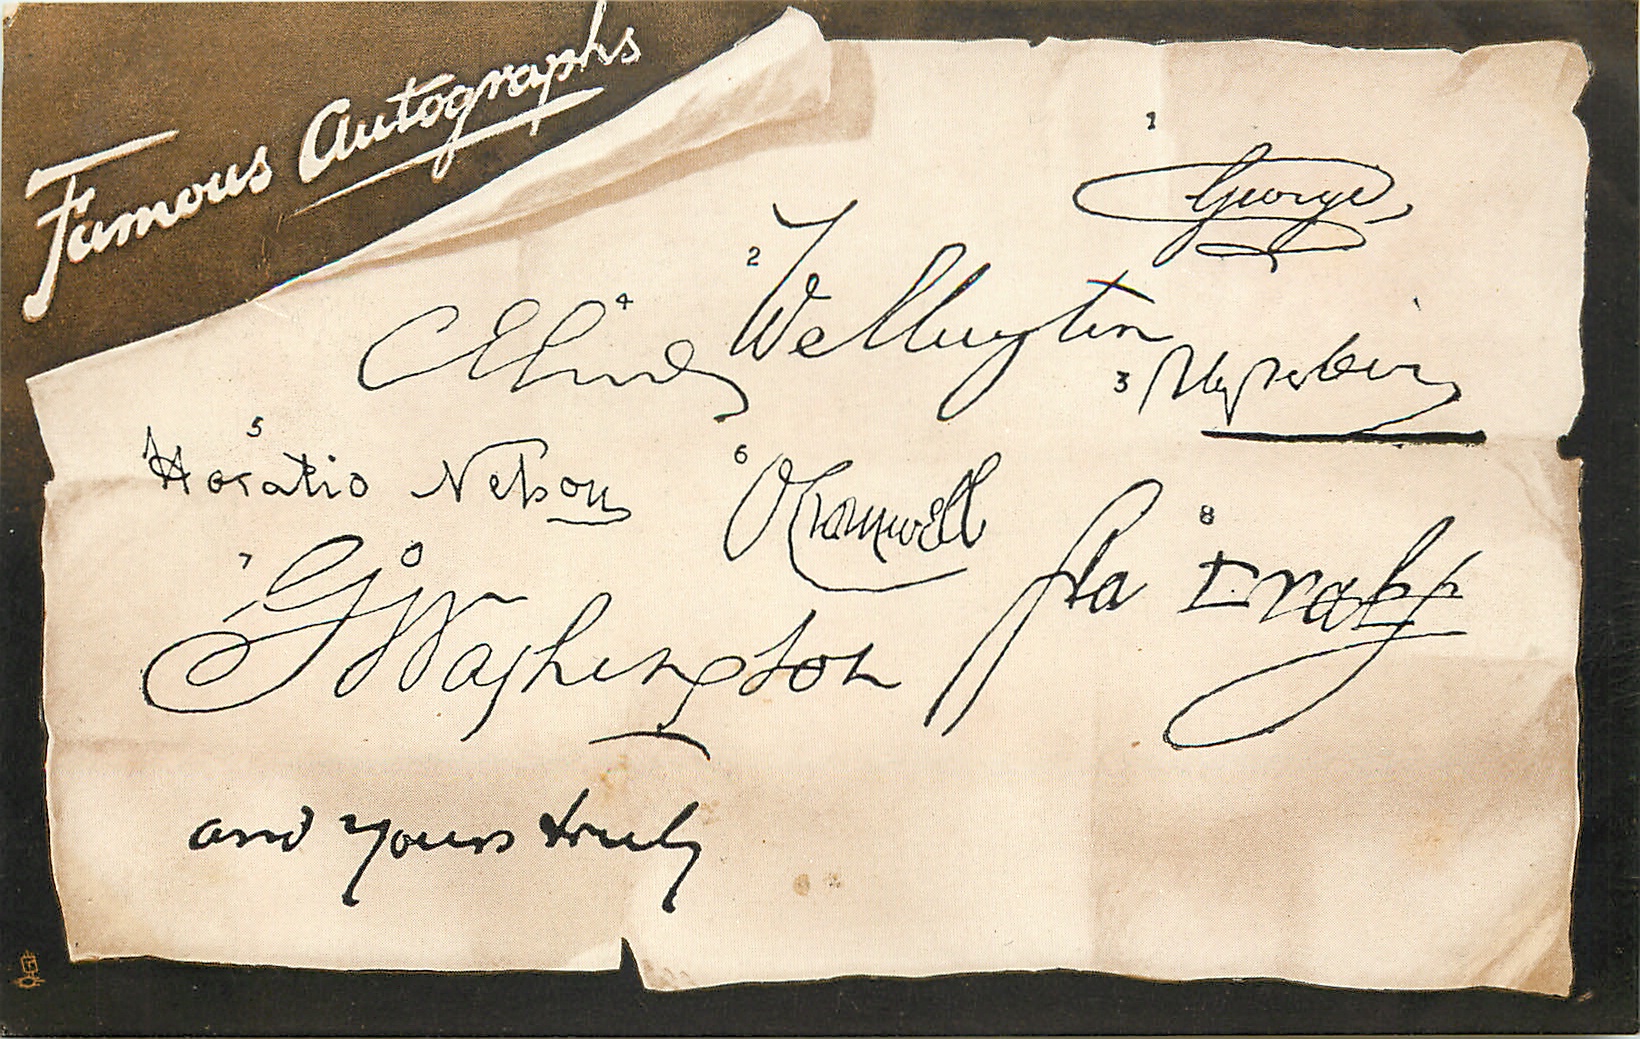 Famous Autographs
1
George
2
Wellington
3
4
5
Horatio Nelson
6
O Cromwell
7
G Washington
8
Fra Drake
and yours truly